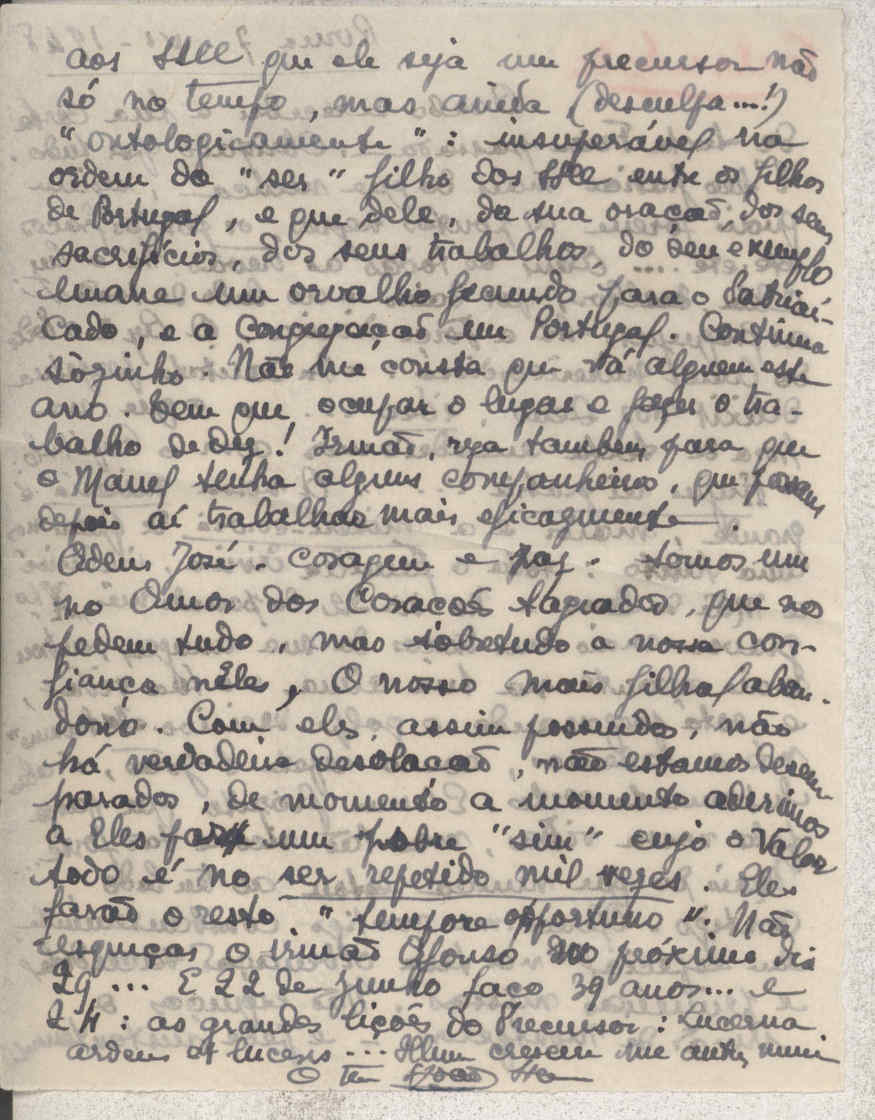 aos SSCC que ele seja um precursor não
só no tempo, mas ainda (desculpa...!)
"ontologicamente": insuperável na
ordem do "ser" filho dos SSCC entre os filhos
de Portugal, e que dele, da sua oração, dos seus
sacrifícios, dos seus trabalhos, do seu exemplo
emane um orvalho fecundo para o Patriar-
cado, e a Congregação em Portugal. Continua
sòzinho. Não me consta que vá alguem este
ano. Tem que ocupar o lugar e fazer o tra-
balho de dez! Irmão, reza tambem para que
o Manel tenha alguns companheiros, que possam
depois aí trabalhar mais eficazmente.
Adeus José. Coragem e paz. Somos um
no Amor dos Corações Sagrados, que nos
pedem tudo, mas sobretudo a nossa con-
fiança nEles, O nosso mais filial aban-
dono. Com eles, assim possuidos, não
há verdadeira desolação, não estamos desem-
parados, de momento a momento aderimos
a Eles um pobre "sim" cujo o valor
todo é no ser repetido mil vezes. Eles
farão o resto "tempore opportuno". Não
esqueças o irmão Afonso no próximo dia
29... E 22 de Junho faço 39 anos... e
24: as grandes lições do Precursor: Lucerna
ardens et lucens... Illum crescere me autem minui
O teu João